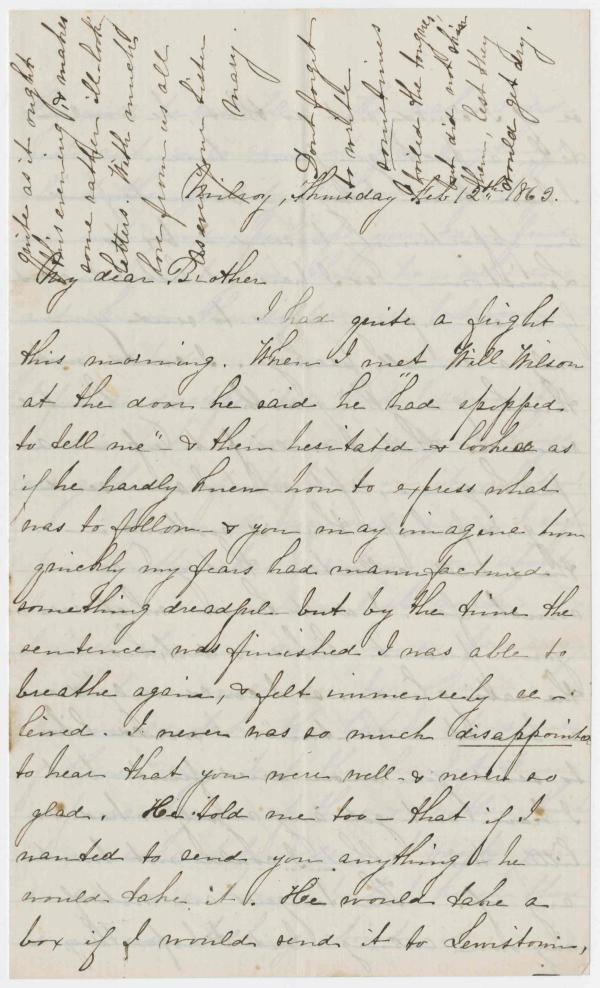 quite as it ought
this evening & makes
some rather ill look
letters. With much
love from us all
as ever Your Sister
Mary.
Dont forget
to write
sometimes
I boiled the tongues,
but did not skin
them, lest they
would get dry.
Milroy, Thursday Feb 12th 1863.
My dear Brother
I had quite a fright
this morning. When I met Will Wilson
at the door he said he "had stopped
to tell me" - & then hesitated & looked as
if he hardly knew how to express what
was to follow - & you may imagine how
quickly my fears had manufactured
something dreadful - but by the time the
sentence was finished I was able to
breathe again, & felt immensely re-
lieved. I never was so much disappointed
to hear that you were well - & never so
glad. He told me too - that if I
wanted to send you anything - he
would take it. He would take a
box if I would send it to Lewistown,